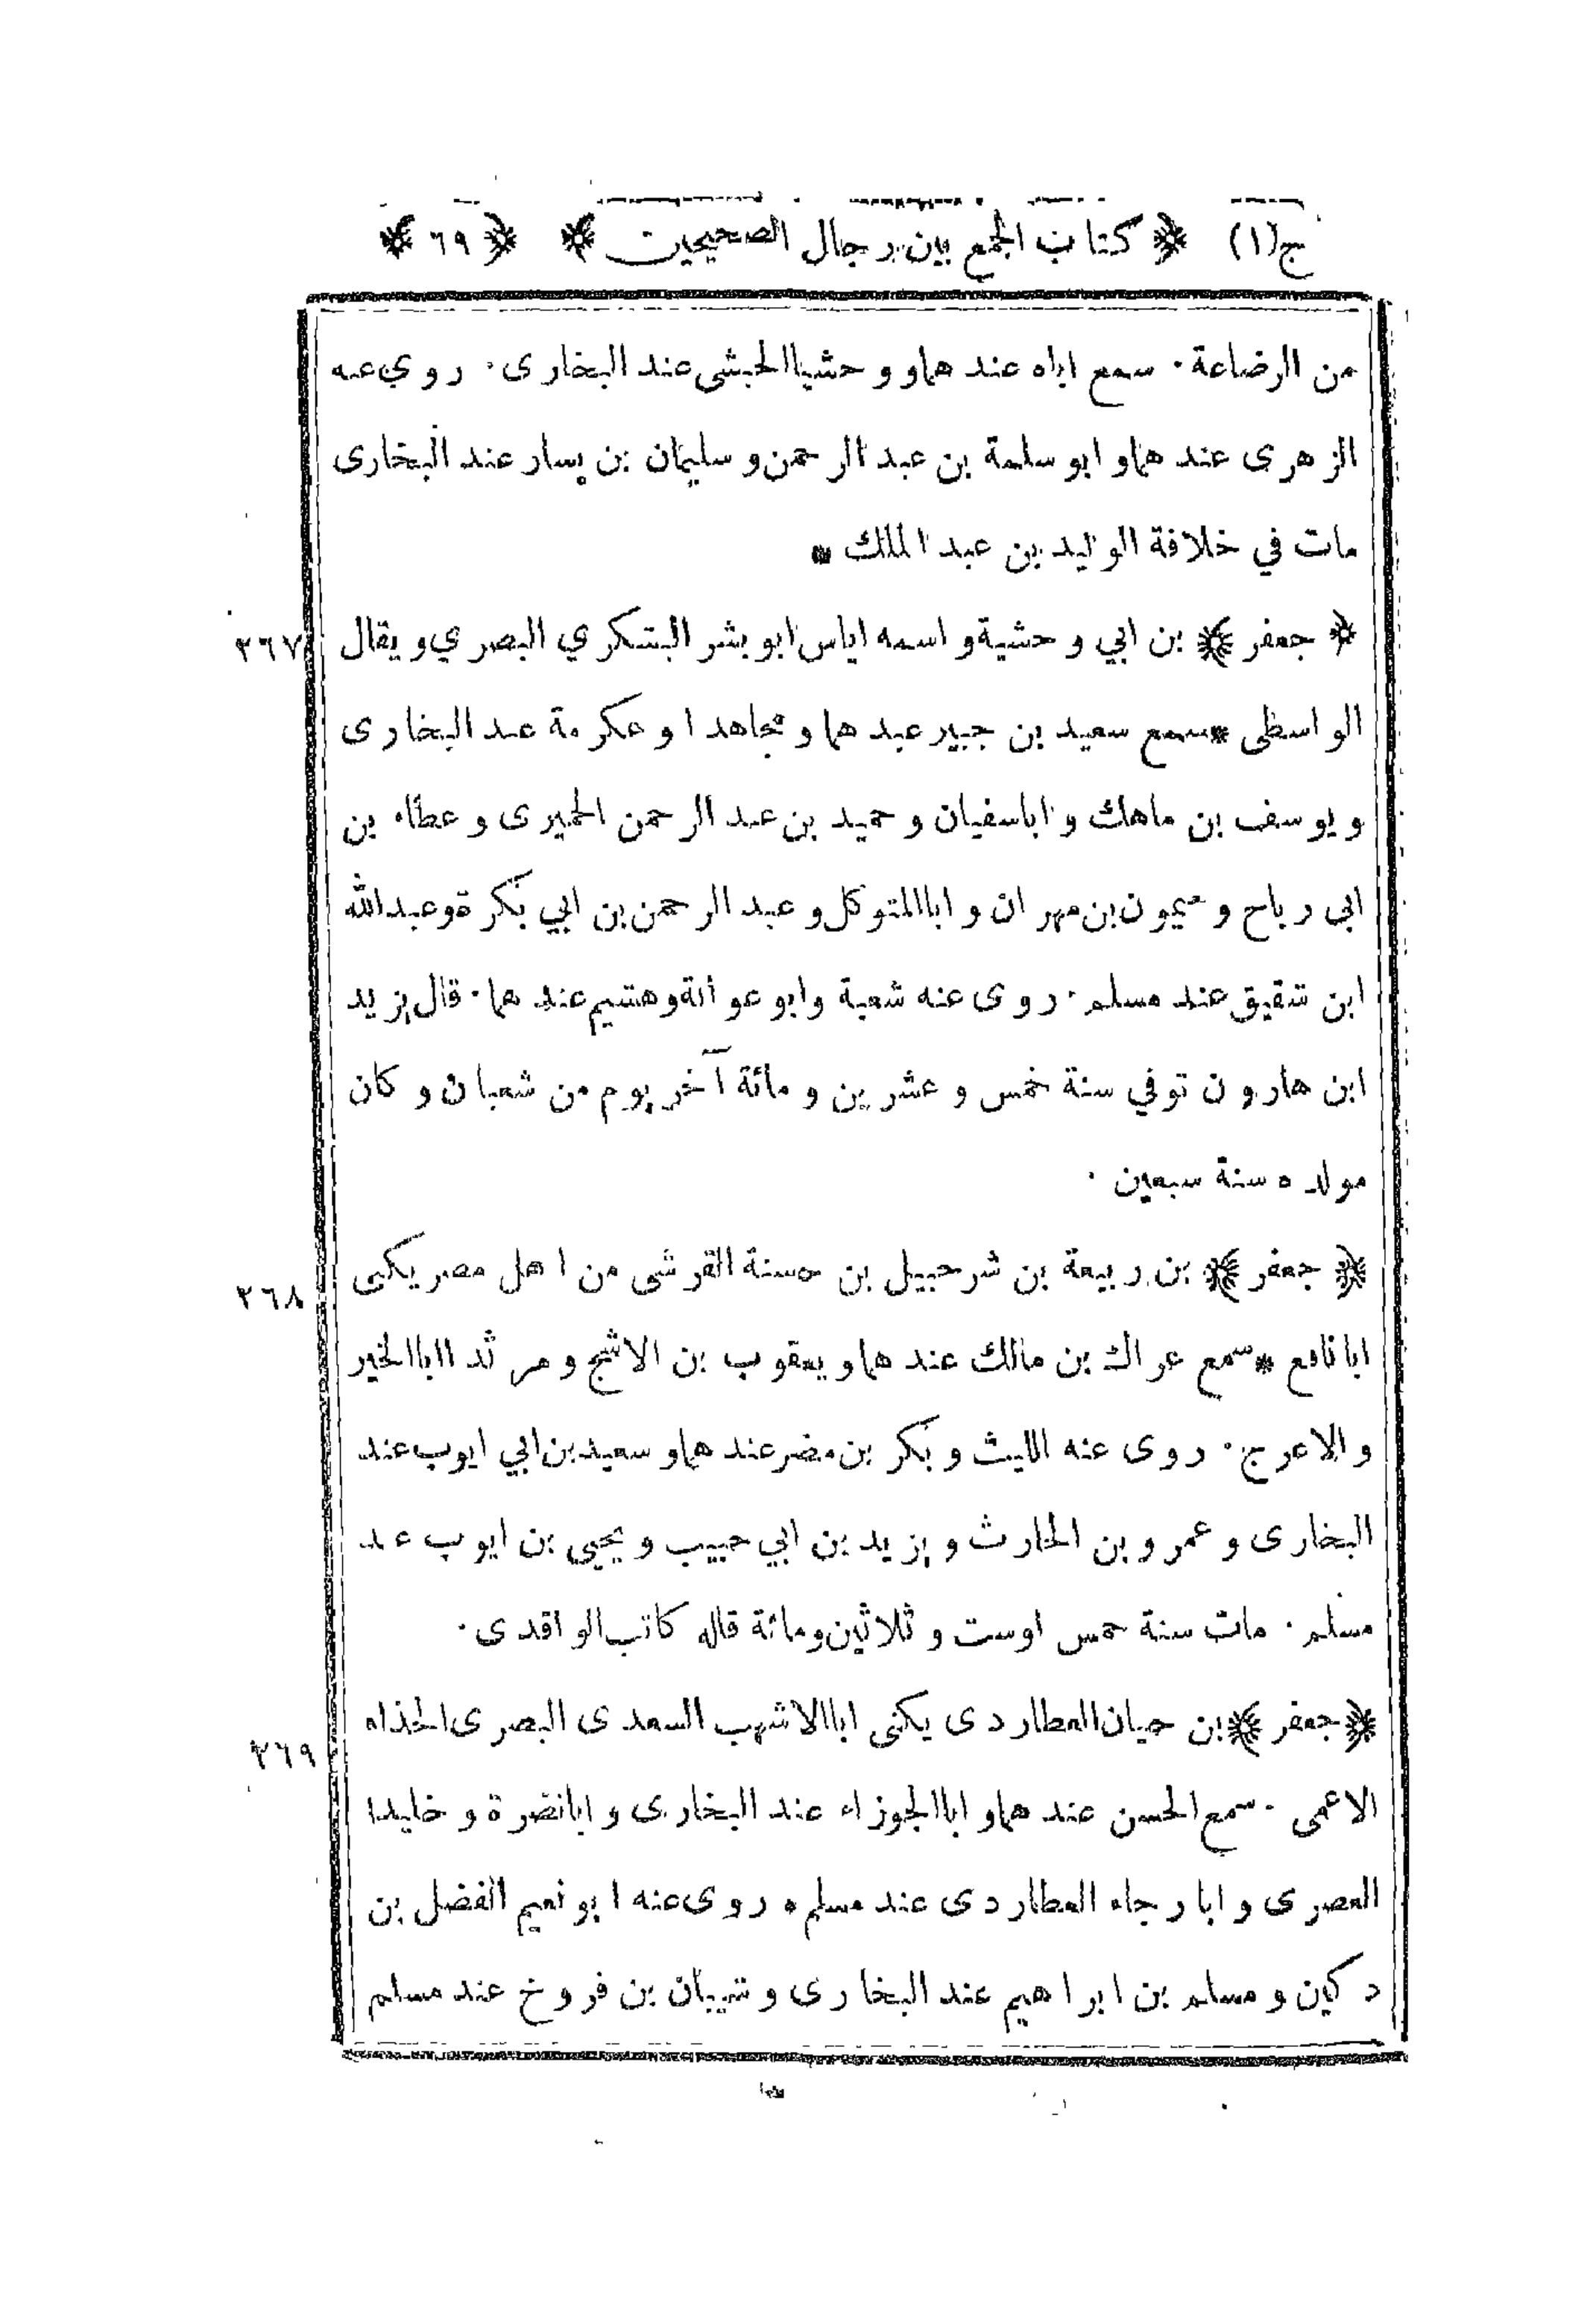 ج(١) ﴿ كتاب الجمع بين رجال الصحيحين ﴾ ﴿ ٦٩ ﴾
من الرضاعة · سمع اباه عند هما و وحشيا الحبشى عند البخارى · روي عنه
الزهرى عند هما و ابو سلمة بن عبد الرحمن و سليمان بن يسار عند البخارى
مات في خلافة الوليد بن عبد الملك *
﴿ جعفر ﴾ بن ابي وحشية و اسمه اياس ابو بشر اليشكري البصري و يقال ٢٦٧
الواسطى * سمع سعيد بن جبير عند هما و مجاهدا و عكرمة عند البخارى
و يوسف بن ماهك و اباسفيان و حميد بن عبد الرحمن الحميرى و عطاء بن
ابى رباح و ميمون بن مهران و ابا المتوكل و عبد الرحمن بن ابي بكرة و عبد الله
ابن شقيق عند مسلم · روى عنه شعبة و ابو عوانة و هشيم عند هما · قال يزيد
ابن هارون توفي سنة خمس و عشرين و مائة آخر يوم من شعبان و كان
مولده سنة سبعين ·
﴿ جعفر ﴾ بن ربيعة بن شرحبيل بن حسنة القرشى من اهل مصر يكنى ٢٦٨
ابا نافع * سمع عراك بن مالك عند هما و يعقوب بن الاشج و مرثد ا ابا الخير
و الاعرج · روى عنه الليث و بكر بن مضر عند هما و سعيد بن ابي ايوب عند
البخارى و عمرو بن الحارث و يزيد بن ابي حبيب و يحيى بن ايوب عند
مسلم · مات سنة خمس اوست و ثلاثين و مائة قاله كاتب الواقدى ·
﴿ جعفر ﴾ بن حيان العطاردى يكنى ابا الاشهب السعدى البصرى الحذاء ٢٦٩
الاعمى · سمع الحسن عند هما و ابا الجوزاء عند البخارى و ابا نضرة و خليدا
العصرى و ابا رجاء العطاردى عند مسلم ه روى عنه ابو نعيم الفضل بن
دكين و مسلم بن ابراهيم عند البخارى و شيبان بن فروخ عند مسلم